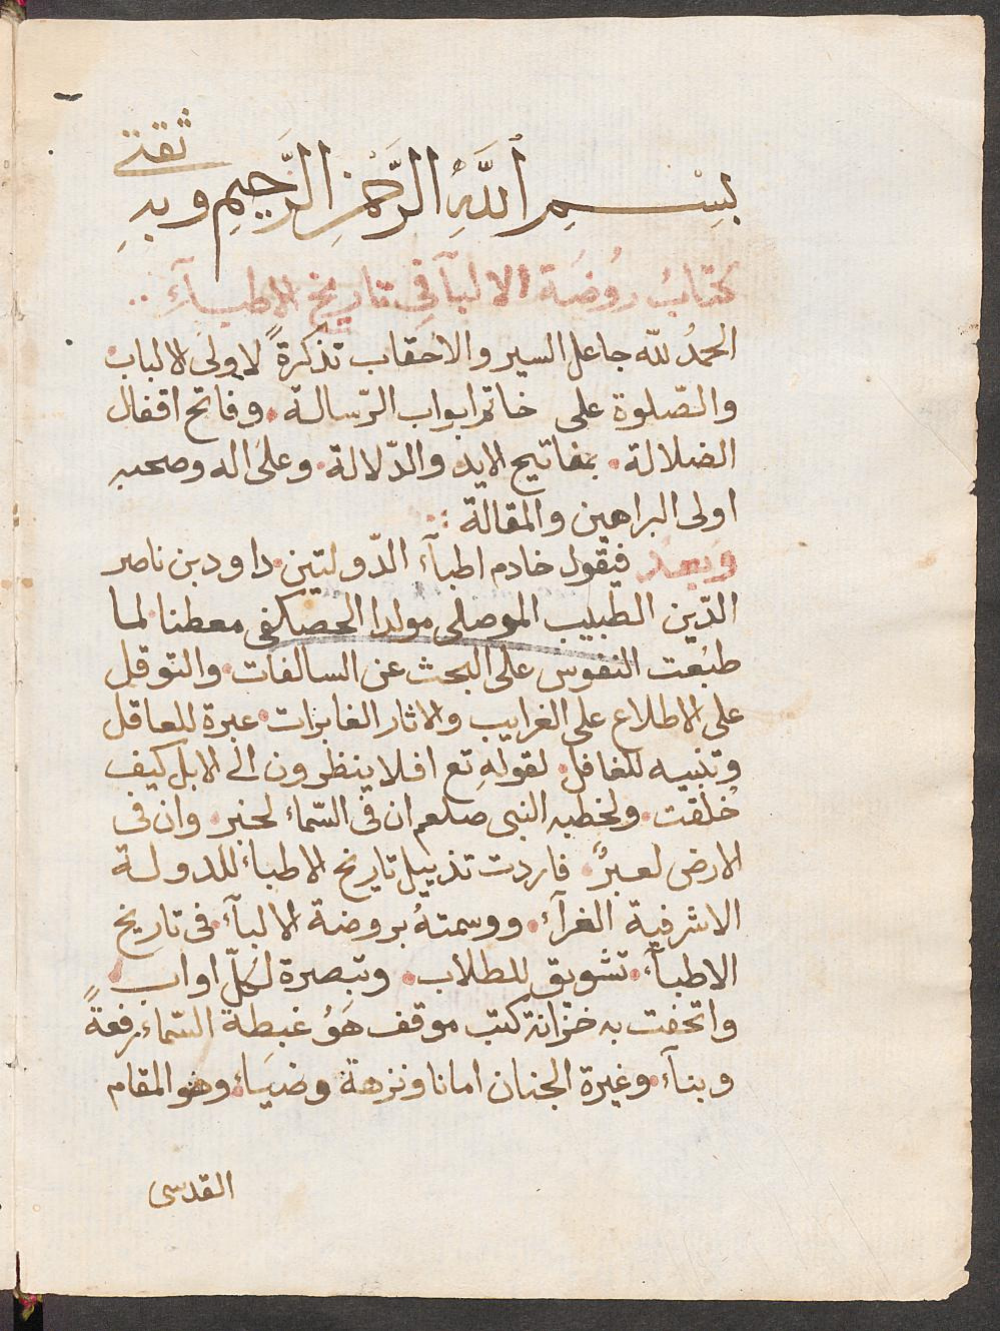 بِسْمِ اللَّهِ الرَّحْمَنِ الرَّحِيمِ وبهِ
ثقتي
كتابُ روُضَة الالبآ فِي تاريخ الاطبآءِ
الحمدُ للّه جاعل السير والاحقاب تذكرةً لاولى الالباب
والصّلوة على خاتم ابواب الرّسالة وفاتح اقفال
الضلالة بمفاتيح الايد والدّلالة وعلى اله وصحبه
اولى البراهين والمقالة
وبعد فيقول خادم اطبآء الدّولتين داود بن ناصر
الدّين الطبيب الموصلى مولدا الحصكفى معطنا لما
طبُعت النفوس على البحث عن السالفات والتوقل
على الاطلاع على الغرايب والاثار الغابرات عبرة للعاقل
وتنبيه للغافل لقولهِ تع افلا ينظرون الى الابل كيف
خُلقت ولخطبه النبى صلعم ان فى السّماء لخبر وان فى
الارض لعبرً فاردت تذييل تاريخ الاطباء للدولة
الاشرفية الغرآء ووسمتهُ بروضة الالبآء فى تاريخ
الاطبآء تشويق للطلاب وتبصرة لكلّ اواب
واتحفت به خزانة كتب موقف هَوُ غبطة السّماء رفعةً
وبنآء وغيرة الجنان امانا ونزهة وضيآء وهو المقام
القدسى